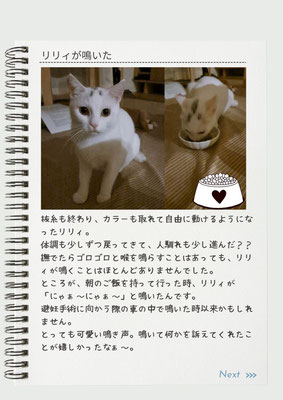 リリィが鳴いた
抜糸も終わり、カラーも取れて自由に動けるようにな
ったリリィ。
体調も少しずつ戻ってきて、人馴れも少し進んだ??
撫でたらゴロゴロと喉を鳴らすことはあっても、リリ
ィが鳴くことはほとんどありませんでした。
ところが、朝のご飯を持って行った時、リリィが
「にゃぁ～にゃぁ～」と鳴いたんです。
避妊手術に向かう際の車の中で鳴いた時以来かもし
れません。
とっても可愛い鳴き声。鳴いて何かを訴えてくれたこ
とが嬉しかったなぁ～。
Next >>>